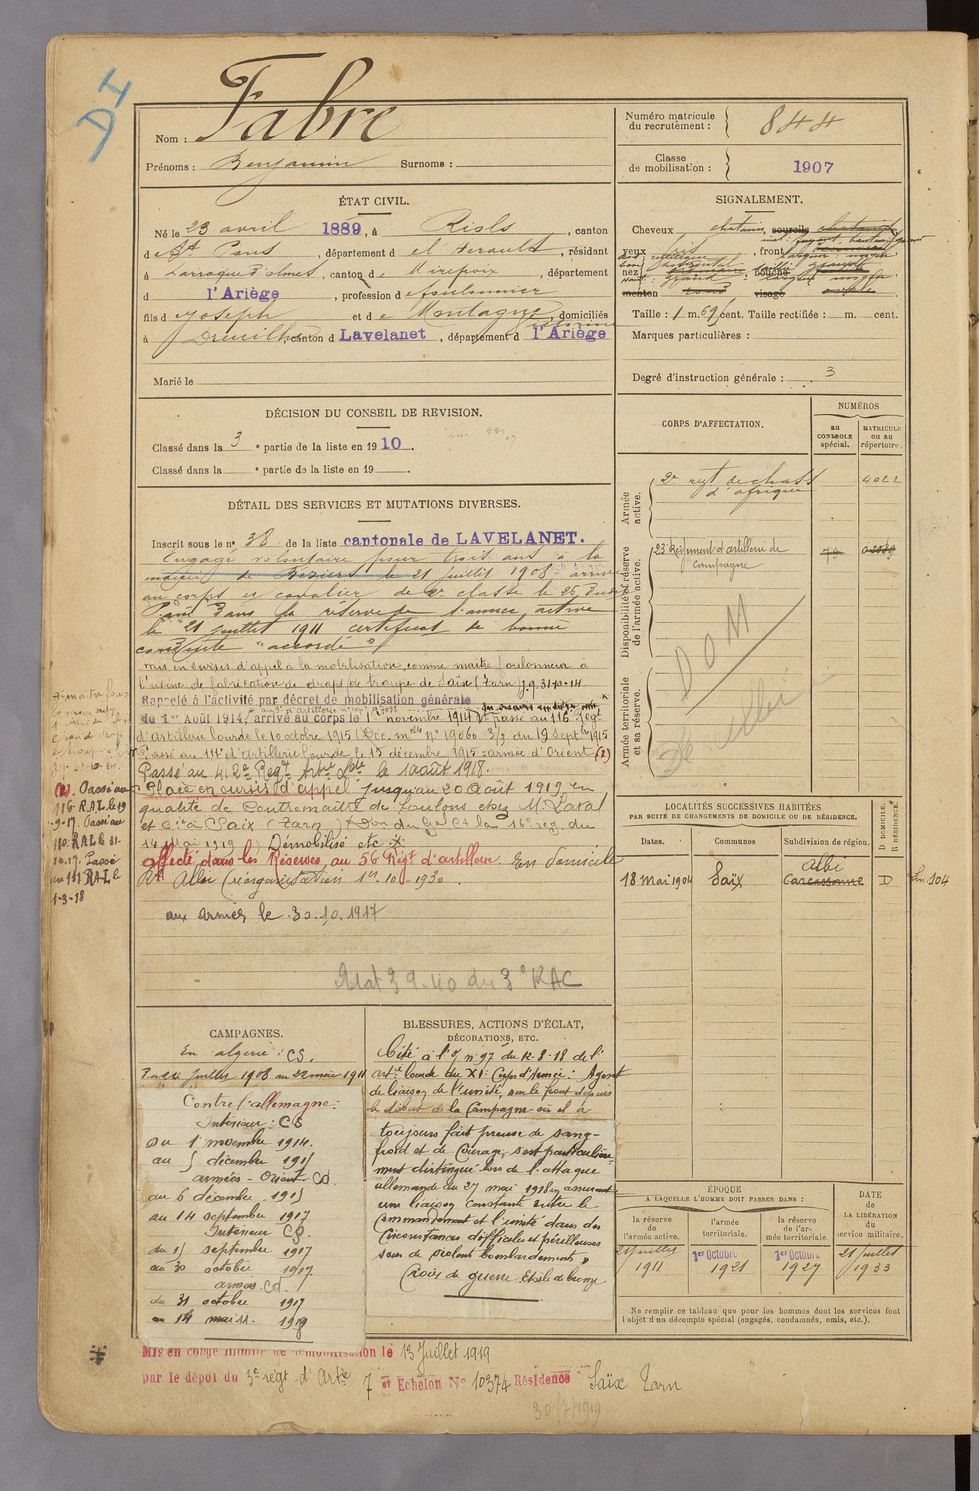 DI
Nom : Fabre
Prénoms : Benjamin Surnome :
Numéro matricule du recrutement : 844
Classe de mobilisation : 1907
ÉTAT CIVIL.
Né le 23 avril 1889, à Riols, canton
de St Pons, département de l'Hérault, résidant
à Larroque d'olmes, canton de Mirepoix, département
d l'Ariège, profession d
fils de Joseph et de Montagne, domiciliés
à Dreuilhe canton d Lavelanet, département d l'Ariège
Marié le
SIGNALEMENT.
Cheveux chatain, sourcils chatains
yeux, front
nez, bouche
menton rond visage ovale
Taille : 1 m. 69 cent. Taille rectifiée : m. cent.
Marques particulières :
Degré d'instruction générale : 3
DÉCISION DU CONSEIL DE REVISION.
Classé dans la 3e partie de la liste en 1910.
Classé dans la e partie de la liste en 19
DÉTAIL DES SERVICES ET MUTATIONS DIVERSES.
Inscrit sous le n° 38 de la liste cantonale de LAVELANET.
Engagé volontaire pour trois ans à la
mairie de Béziers le 21 juillet 1908 arrivé
au corps et cavalier de 2e classe le 25 dudit
Passé dans la réserve de l'armée active
le 21 juillet 1911 certificat de bonne
conduite "accordé"
mis en sursis d'appel à la mobilisation comme maître foulonnier à
l'usine de fabrication de draps de troupe de Saïx (Tarn) J.9.31-10-14
Rappelé à l'activité par décret de mobilisation générale
du 1er Août 1914, arrivé au corps le 1er novembre 1914 passé au 116e Régt
d'artillerie lourde le 10 octobre 1915 (Déc. mlle n° 19060 3/3 du 19 Septbre 1915
Passé au 114e d'artillerie lourde le 15 décembre 1915 = armée d'Orient (2)
Passé au 412e Régt Artie lde le 1 août 1918.
Placé en sursis d'appel jusqu'au 20 Août 1919 en
qualité de Contremaître de foulons chez Mr Laval
et Cie à Saïx (Tarn) Don du Gal Ct la 16e rég. du
14 Mai 1919) Démobilisé etc
affecté dans les Réserves, au 56 Régt d'artillerie. En domicile
Rt Albi (réorganisation 1er-10-1930.
aux armées le 30.10.1917
(2). Passé au
116. R.A.L. le 19
-9-17. Passé au
110. R.A.L. le 31-
10-17. Passé
au 141 R.A.L le
1-3-18
39-40 du 3e RAC
CORPS D'AFFECTATION.
NUMÉROS
au CONTROLE spécial.
MATRICULE ou au répertoire.
Armée active.
2e rgt de chass
d'afrique
4022
Disponibilité et réserve de l'armée active.
23e Régiment d'artillerie de
campagne
Armée territoriale et sa réserve.
DOM
LOCALITÉS SUCCESSIVES HABITÉES
PAR SUITE DE CHANGEMENTS DE DOMICILE OU DE RÉSIDENCE.
Dates. Communes Subdivision de région. D DOMICILE. R RÉSIDENCE.
Albi
18 Mai 1904 Saïx Carcassonne D
CAMPAGNES.
En algérie : CS.
Du 24 juillet 1908 au 22 1911
Contre l'allemagne :
Intérieur : CS
du 1 novembre 1914.
au 5 décembre 1915
armées - Orient Cd.
du 6 décembre 1915
au 14 septembre 1917
Intérieur CS.
du 15 septembre 1917
au 30 octobre 1917.
armées Cd.
du 31 octobre 1917
au 14 mai 1919
BLESSURES, ACTIONS D'ÉCLAT,
DÉCORATIONS, ETC.
Cité à l'O/ n° 97 du 12-8-18 de l'
artie lourde du XIe Corps d'Armée : Agent
de liaison de l'unité, sur le front depuis
le début de la Campagne où il a
toujours fait preuve de sang-
froid et de courage, s'est particulière-
ment distingué lors de l'attaque
allemande du 27 mai 1918 en assurant
une liaison constante entre le
Commandement et l'unité dans des
Circonstances difficiles et périlleuses
sous de violents bombardements"
Croix de guerre Etoile de bronze
ÉPOQUE
A LAQUELLE L'HOMME DOIT PASSER DANS :
la réserve de l'armée active.
l'armée territoriale.
la réserve de l'armée territoriale.
DATE de LA LIBÉRATION du service militaire.
21 juillet 1911
1er Octobre 1921
1er Octobre 1927
21 juillet 1933
Ne remplir ce tableau que pour les hommes dont les services font
l'objet d'un décompte spécial (engagés, condamnés, omis, etc.).
Mis en congé illimité de démobilisation le 13 Juillet 1919
par le dépôt du 3e régt d'Artie 7 er Echelon N° 10374 Résidence Saïx Tarn
30/7/1919